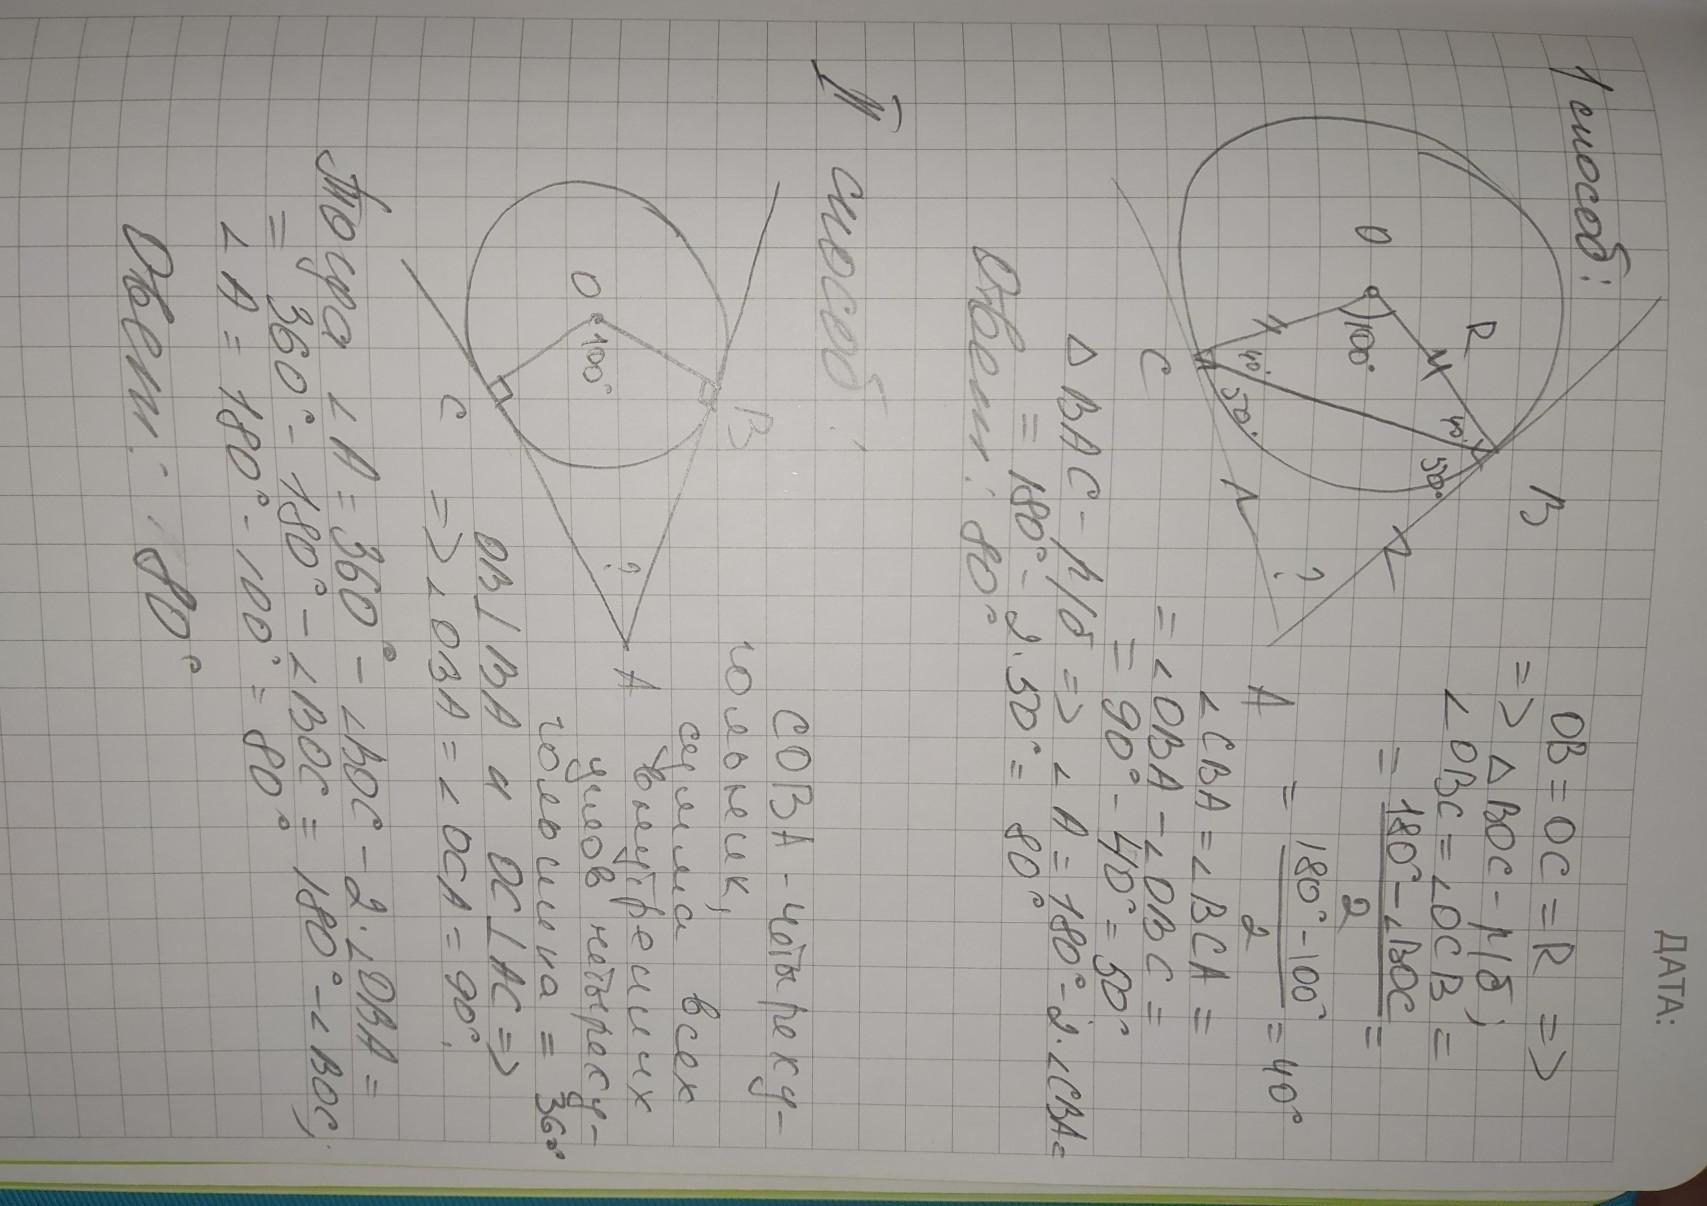 ДАТА:
1 способ:
O
100°
R
40°
40°
50°
50°
B
C
?
A
OB = OC = R =>
=> △ BOC - р/б;
∠OBC = ∠OCB =
= 180° - ∠BOC
2
=
= 180° - 100°
2
= 40°
∠CBA = ∠BCA =
= ∠OBA - ∠OBC =
= 90° - 40° = 50°
△ BAC - р/б => ∠A = 180° - 2·∠CBA =
= 180° - 2·50° = 80°
Ответ: 80°
II способ:
O
100°
B
C
?
A
COBA - четыреку-
гольник,
сумма всех
внутренних
углов четыреху-
гольника = 360°
OB⊥BA и OC⊥AC =>
=> ∠OBA = ∠OCA = 90°;
Тогда ∠A = 360° - ∠BOC - 2·∠OBA =
= 360° - 180° - ∠BOC = 180° - ∠BOC;
∠A = 180° - 100° = 80°
Ответ: 80°